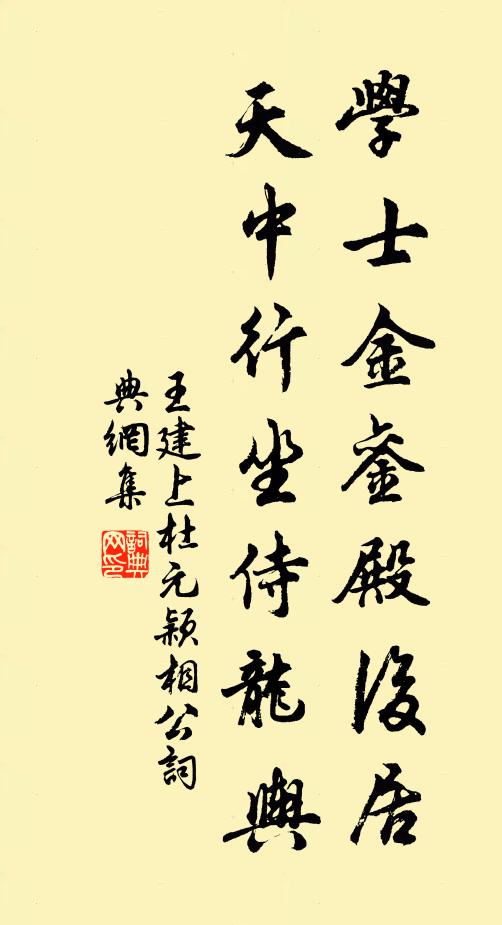 學士金銮殿後居
天中行坐侍龍輿
王建上杜元颖相公詞
典網集
詞典
网印